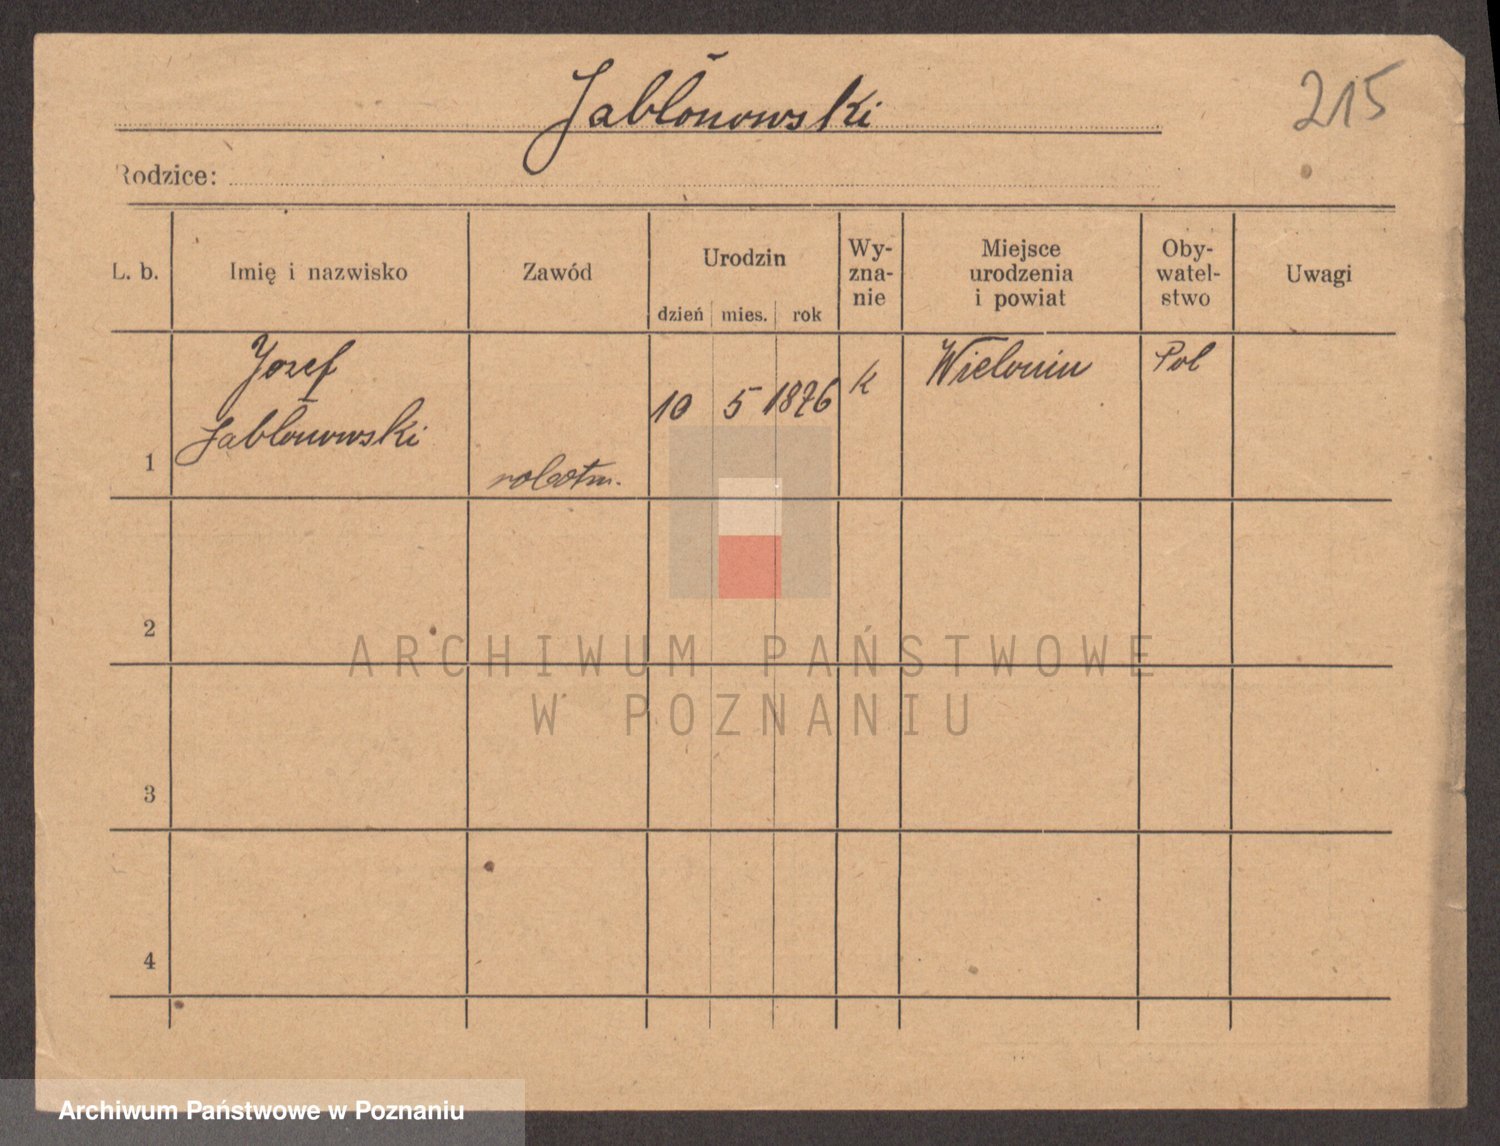 Jabłonowski
215
Rodzice:
L. b.
Imię i nazwisko
Zawód
Urodzin
dzień mies. rok
Wy-
zna-
nie
Miejsce
urodzenia
i powiat
Oby-
watel-
stwo
Uwagi
1
Jozef
Jabłonowski
robotn.
10 5 1876
k
Pol
2
3
4
ARCHIWUM PAŃSTWOWE
W POZNANIU
Archiwum Państwowe w Poznaniu